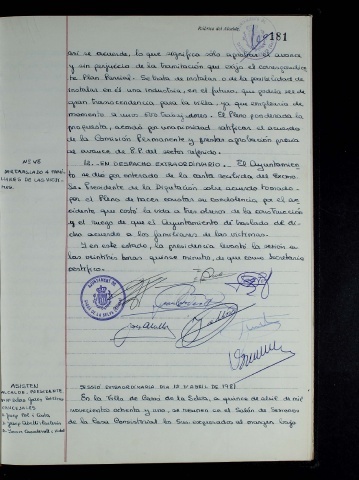 181
así se acuerde, lo que significa sólo aprobar el avance
y sin perjuicio de la tramitación que exija el correspondien-
te Plan Parcial. Se trata de instalar o de la posibilidad de
instalar en él una industria, en el futuro, que podría ser de
gran trascendencia para la villa, ya que emplearía de
momento a unos. El Pleno ponderada la
propuesta, acordó por unanimidad ratificar el acuerdo
de la Comisión Permanente y prestar aprobación previa
de avance de P.P. del sector referido.
12.- EN DESPACHO EXTRAORDINARIO.- El Ayuntamien-
to se dio por enterado de la carta recibida del Excmo.
Sr. Presidente de la Diputación sobre acuerdo tomado
por el Pleno de hacer constar su condolencia por el ac-
cidente que costó la vida a tres obreros de la construcción
y el ruego de que el Ayuntamiento dé traslado de di-
cho acuerdo a los familiares de las víctimas.
Y en este estado, la presidencia levantó la sesión a
las veintitrés horas quince minutos, de que como Secretario
certifico.
LIARES DE LAS VICTI-
MAS.
AJUNTAMENT DE
ASISTEN
ALCALDE-PRESIDENTE
CONCEJALES
SESSIÓ EXTRAORDINARIA DIA 15 D'ABRIL DE 1981.
En la Villa de Cassá de la Selva, a quince de abril de mil
novecientos ochenta y uno, se reunen en el Salón de Sesiones
de la Casa Consistorial los Sres. expresados al margen bajo